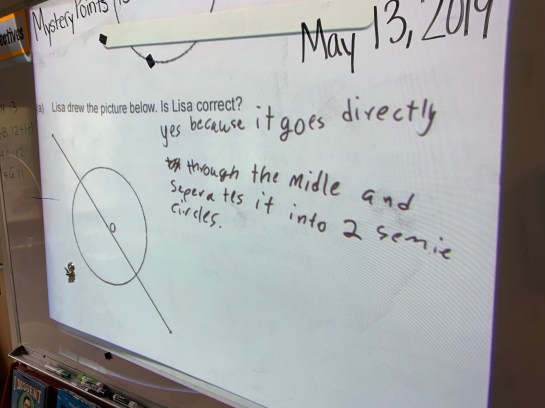 Mystery Points
May 13, 2019
a) Lisa drew the picture below. Is Lisa correct?
yes because it goes directly
through the midle and
seperates it into 2 semie
circles.